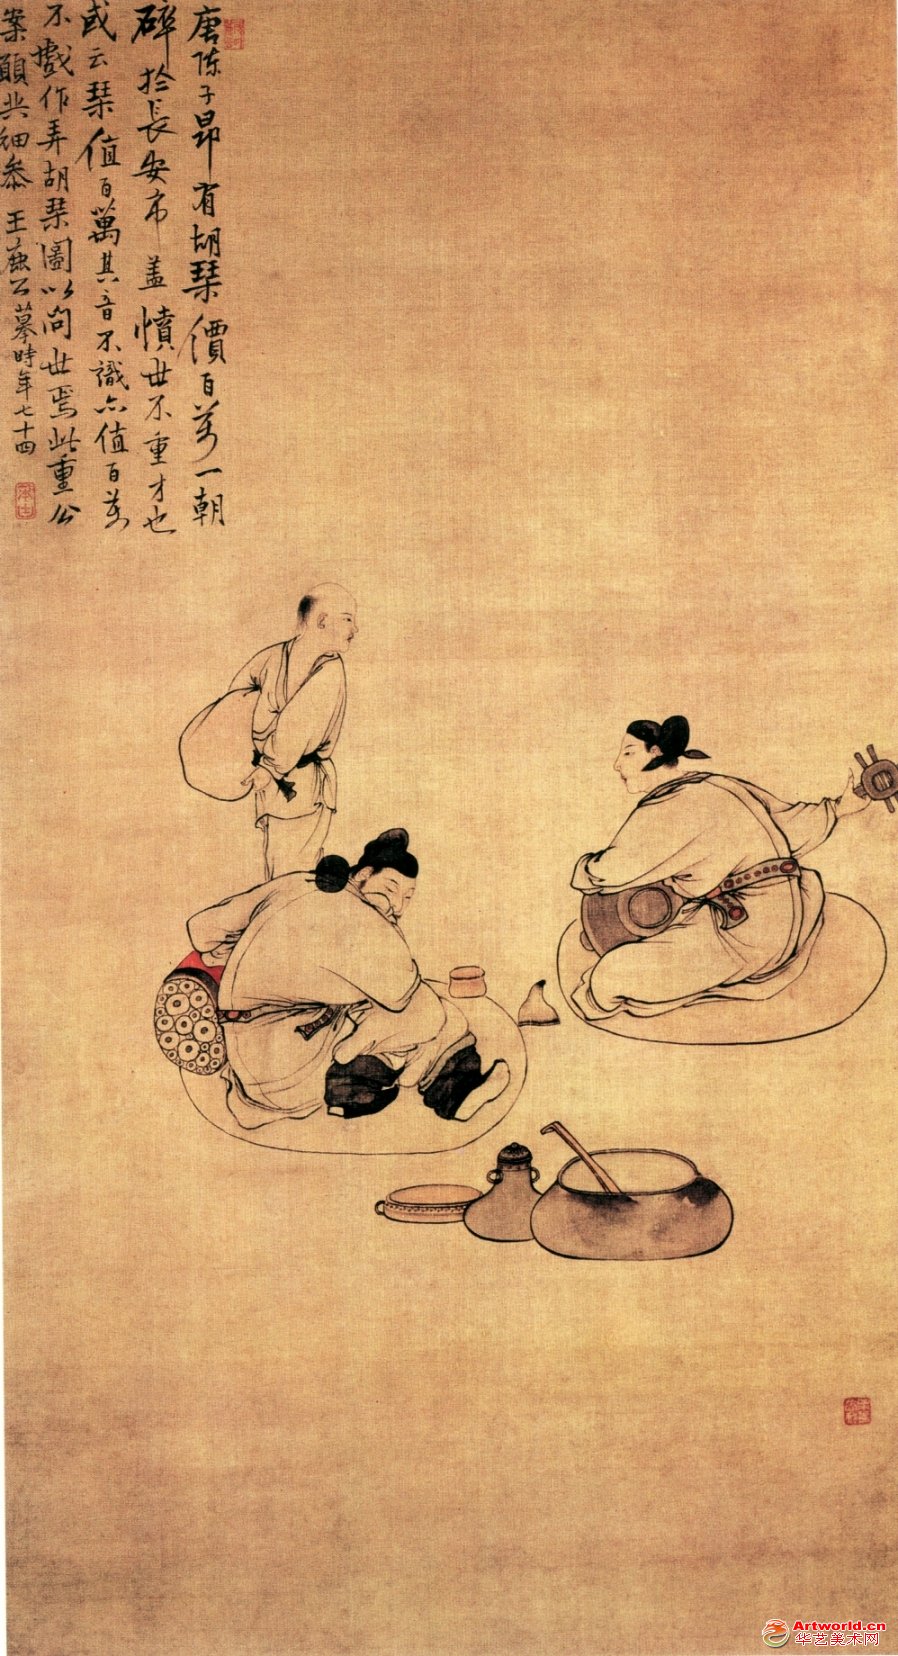 唐陈子昂有胡琹價百万一朝
碎於長安市盖憤世不重才也
或云琹值百萬其音不識亦值百万
不戲作弄胡琹圖以问世焉此重公
案願共细参 王 公摹時年七十四
Artworld.cn
华艺美术网